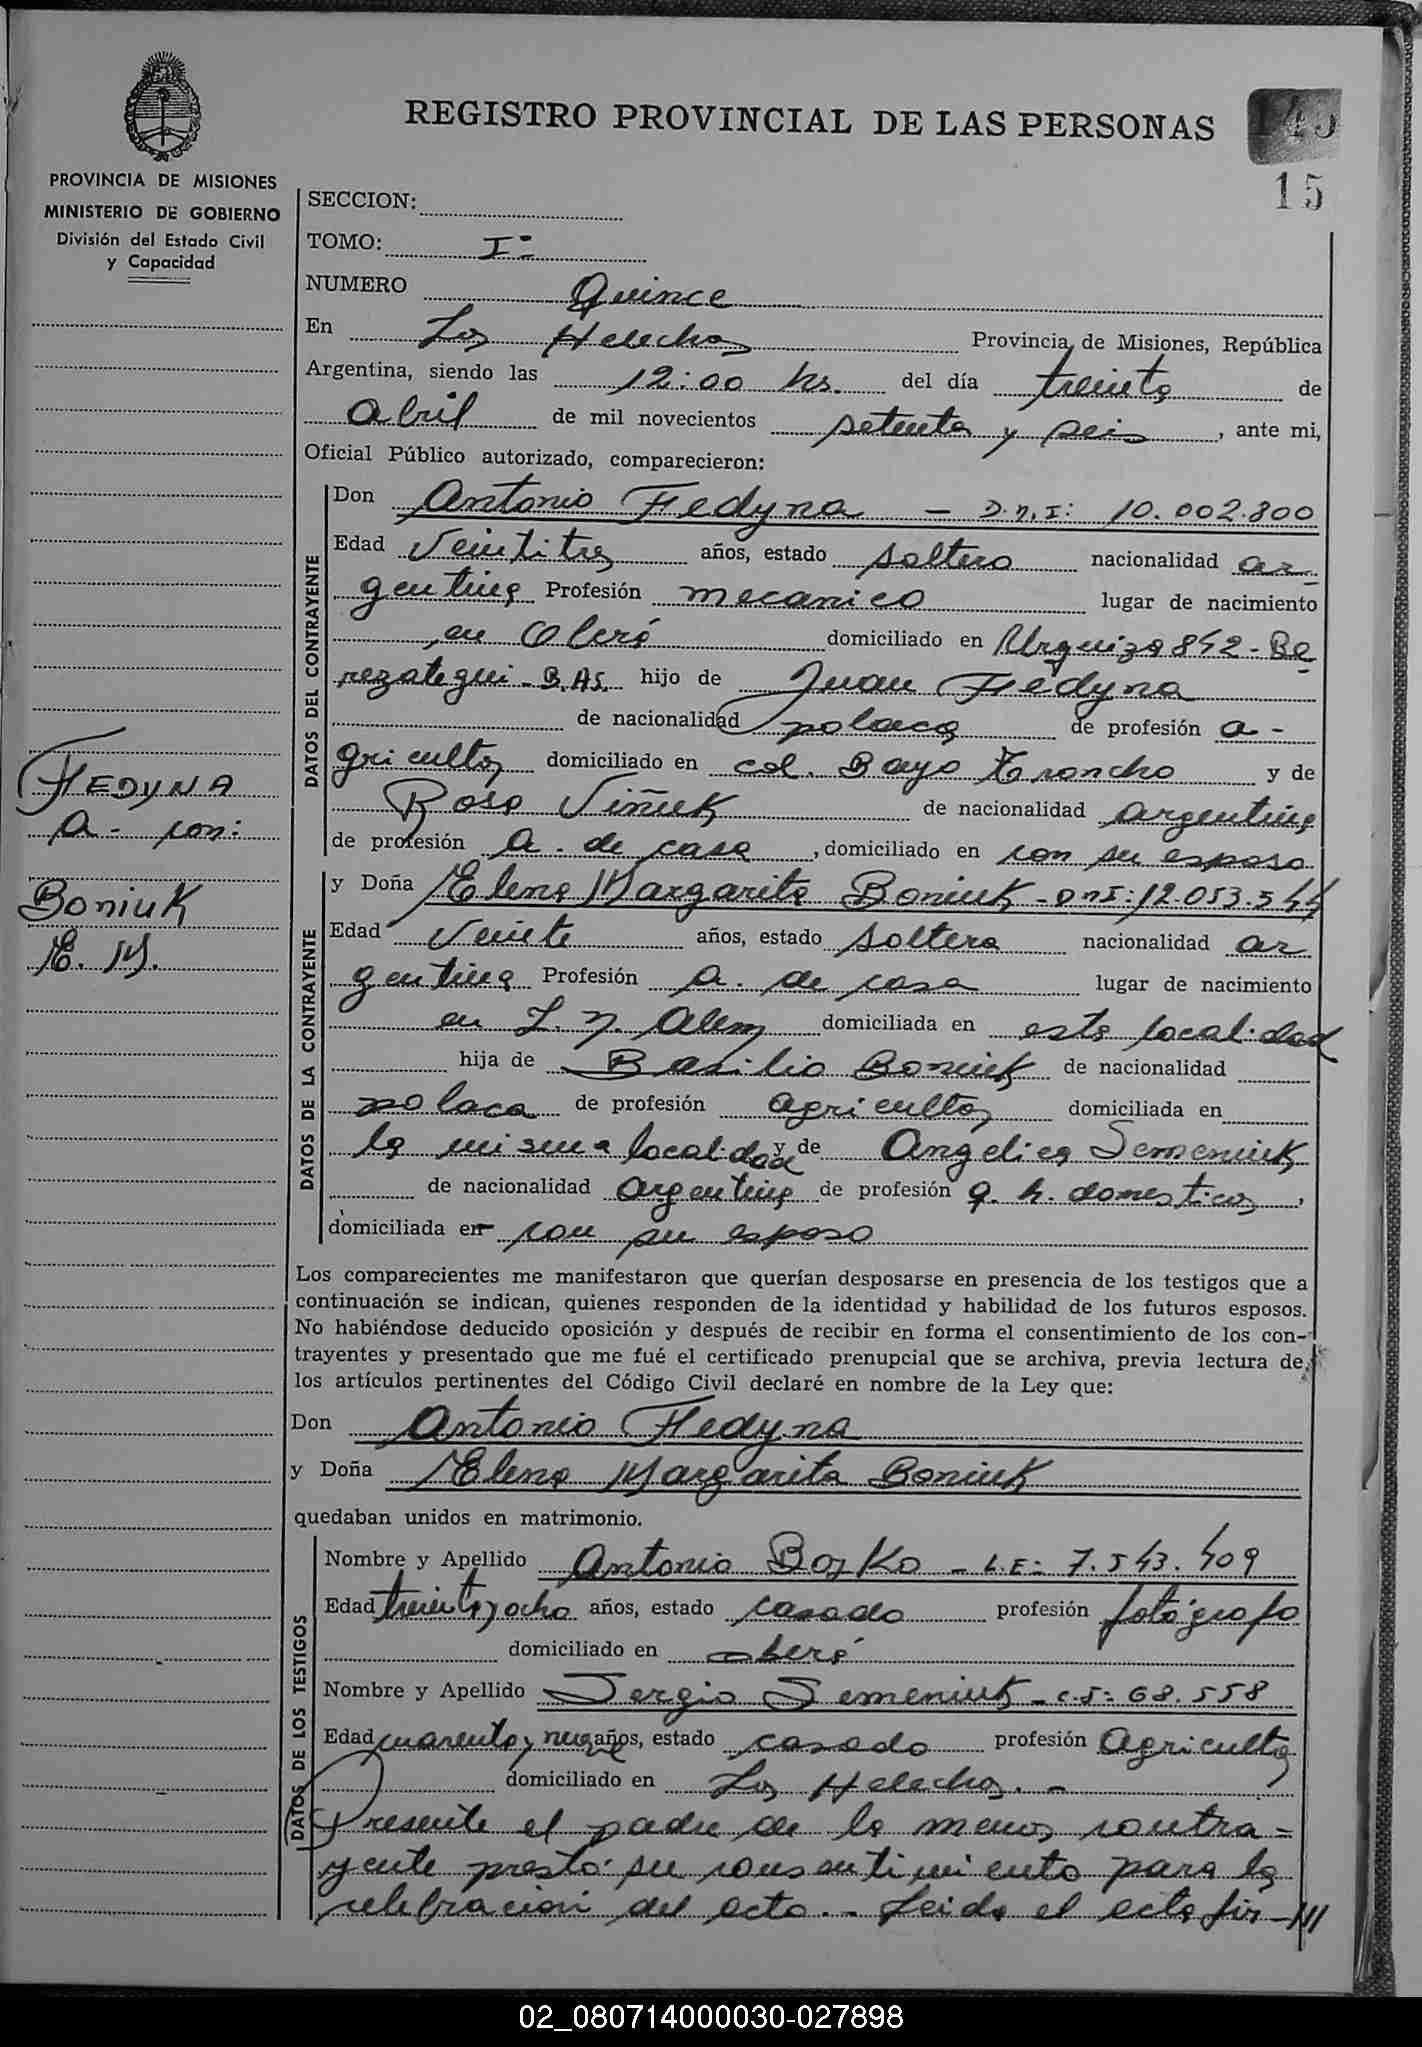 REGISTRO PROVINCIAL DE LAS PERSONAS
15
PROVINCIA DE MISIONES
MINISTERIO DE GOBIERNO
División del Estado Civil
y Capacidad
SECCION:
TOMO: I=
NUMERO Quince
En Los Helechos Provincia de Misiones, República
Argentina, siendo las 12:00 hs. del día treinta de
abril de mil novecientos setenta y seis, ante mi,
Oficial Público autorizado, comparecieron:
DATOS DEL CONTRAYENTE
Don Antonio Fedyna - D.N.I: 10.002.800
Edad Veintitres años, estado soltero nacionalidad ar-
gentina Profesión mecanico lugar de nacimiento
en Oberá domiciliado en Urquiza 842 - Be
rezategui - B. As. hijo de Juan Fedyna
de nacionalidad polaca de profesión a-
gricultor domiciliado en col. Bayo Troncho y de
Rosa Viñuk de nacionalidad argentina
de profesión a. de casa, domiciliado en con su esposo
FEDYNA
A- con:
BoniuK
E. M.
DATOS DE LA CONTRAYENTE
y Doña Elena Margarita Boniuk - DNI: 12.053.544
Edad Veinte años, estado soltera nacionalidad ar
gentina Profesión a. de casa lugar de nacimiento
en L. N. Alem domiciliada en esta localidad
hija de Basilio Boniuk de nacionalidad
polaca de profesión agricultor domiciliada en
la misma localidad y de Angelica Semeniuk
de nacionalidad argentina de profesión q. h. domesticos,
domiciliada en con su esposo
Los comparecientes me manifestaron que querían desposarse en presencia de los testigos que a
continuación se indican, quienes responden de la identidad y habilidad de los futuros esposos.
No habiéndose deducido oposición y después de recibir en forma el consentimiento de los con-
trayentes y presentado que me fué el certificado prenupcial que se archiva, previa lectura de
los artículos pertinentes del Código Civil declaré en nombre de la Ley que:
Don Antonio Fedyna
y Doña Elena Margarita Boniuk
quedaban unidos en matrimonio.
DATOS DE LOS TESTIGOS
Nombre y Apellido Antonio BozKo - L.E: 7.543.409
Edad treinta y ocho años, estado casado profesión fotógrafo
domiciliado en oberá
Nombre y Apellido Sergio Semeniuk - C.I: 68.558
Edad cuarenta y nueve años, estado casado profesión Agricultor
domiciliado en Los Helechos. -
Presente el padre de la menor contra=
yente prestó su consentimiento para la
celebracion del acto. - Leida el acta fir-///
02_080714000030-027898